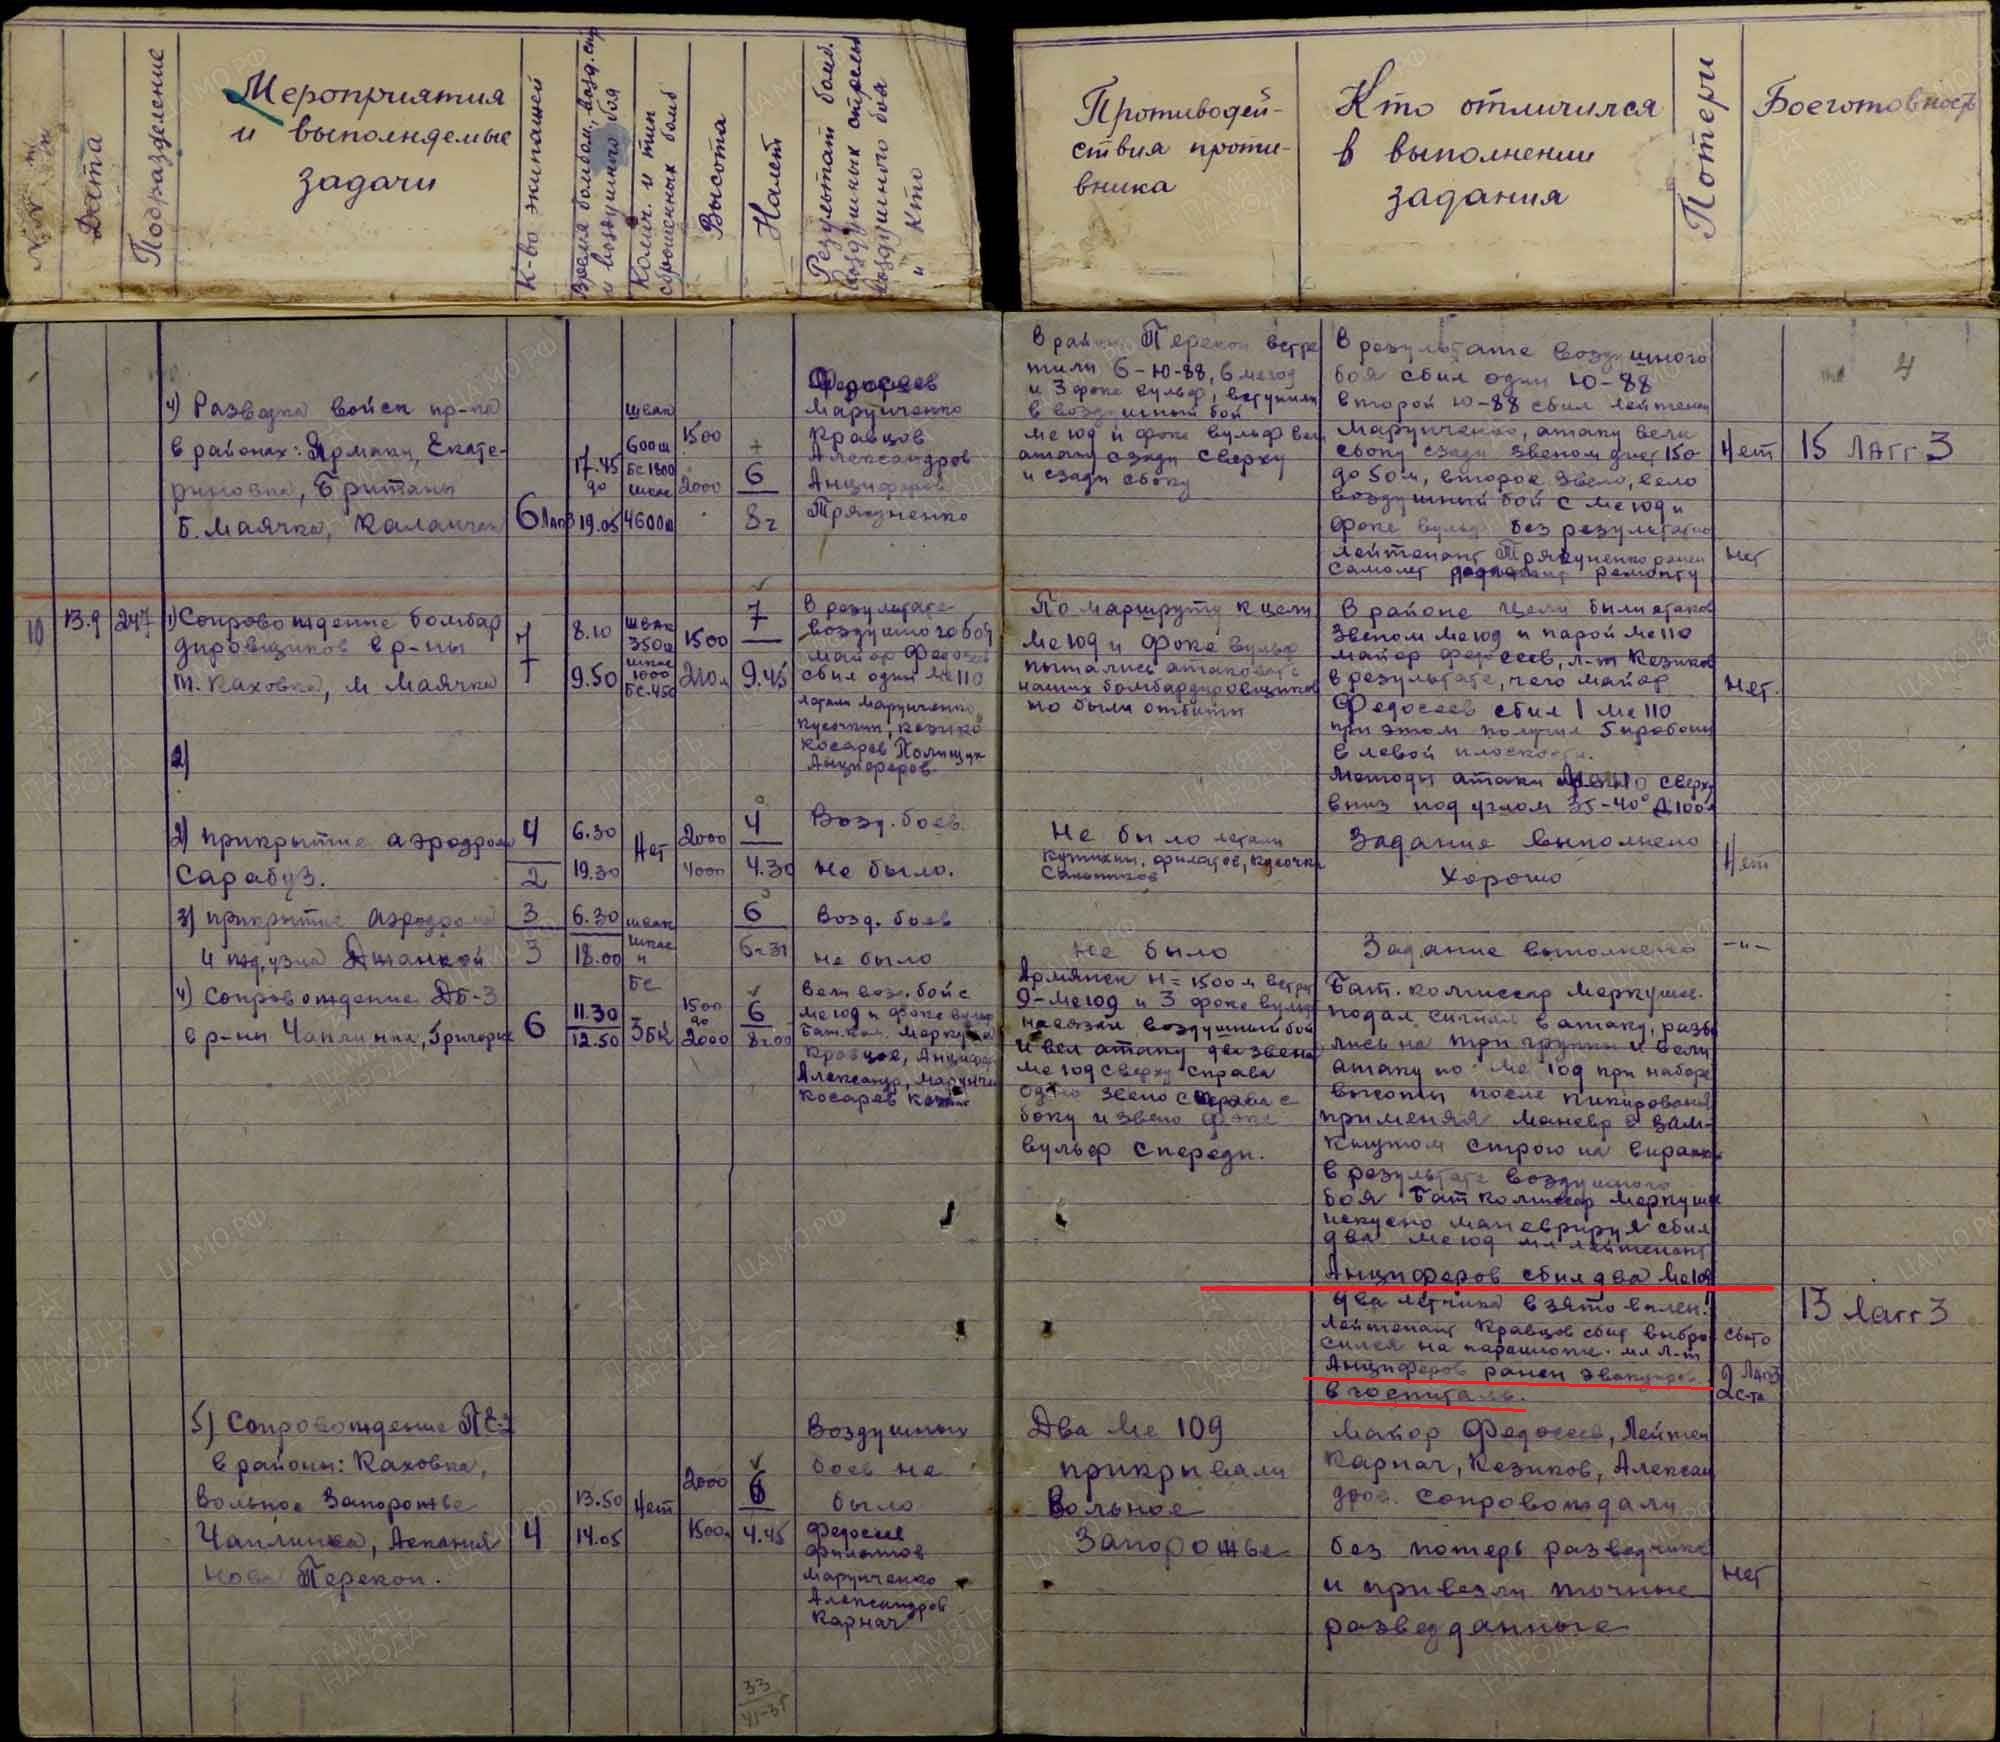 №№ пп
Дата
Подразделение
Мероприятия
и выполняемые
задачи
К-во экипажей
Время бомбом., возд. стр.
и воздушного боя
Колич. и тип
сброшенных бомб
Высота
Налет
Результат бомб.
воздушных стрельб
воздушного боя
и Кто
Противодей-
ствия проти-
вника
Кто отличился
в выполнении
задания
Потери
Боеготовность
4) Разведка войск пр-ка
в районах: Ярмаки, Екате-
риновка, Британы
Б. Маячка, Каланчак
6 Лагг3
17.45
до
19.05
Швак
600ш
БС 1800
Шкас
4600ш
1500
2000
6
8ч
Федосеев
Марунченко
Кравцов
Александров
Анциферов
Трязненко
В районе Перекоп встре
тили 6-Ю-88, 6 ме109
и 3 фоке вульф, вступили
в воздушный бой
ме109 и фоке вульф вели
атаку сзади сверху
и сзади сбоку
В результате воздушного
боя сбил один Ю-88
второй Ю-88 сбил лейтенант
Марунченко, атаку вели
сбоку сзади звеном 150
до 50м, второе звено, вело
воздушный бой с ме109 и
фоке вульф без результатно
лейтенант ранен
самолет ремонту
Нет
Нет
4
15 Лагг 3
10
13.9
247
1) Сопровождение бомбар
дировщиков в р-ны
т. Каховка, М Маячка
7
7
8.10
9.50
ШВАК
350ш
шкас
1000
БС-450
1500
210м
7
9.45
В результате
воздушного боя
майор Федосеев
сбил один Ме110
летали Марунченко
Кусочкин, Кезиков
Косарев Полищук
Анциферов.
По маршруту к цели
Ме109 и Фоке вульф
пытались атаковать
наших бомбардировщиков
но были отбиты
В районе цели были атаков
звеном Ме109 и парой Ме110
майор Федосеев, л-т Кезиков
в результате, чего майор
Федосеев сбил 1 Ме110
при этом получил 5 пробоин
в левой плоскости.
Методы атаки сверху
вниз под углом 35-40° Д 100м
Нет.
2)
2) прикрытие аэродром
Сарабуз.
4
2
6.30
19.30
Нет
2000
4000
4
4.30
Возд. боев
не было.
Не было летали
Филатов, Кусочкин
Задание выполнено
Хорошо
Нет
3) прикрытие аэродрома
и жд. узла Джанкой
3
3
6.30
18.00
швак
шкас
и
БС
6
6ч 31
Возд. боев
не было
Не было
Задание выполнено
-"-
4) Сопровождение ДБ-3
в р-ны Чаплинка, Григорьевка
6
11.30
12.50
3БК
1500
до
2000
6
8ч.00
Вели воз. бой с
Ме109 и фоке вульф
Бат. ком. Меркушев
Кравцов, Анциферов
Александр, Марунчен
Косарев
Армянск Н=1500м встрет
9-Ме109 и 3 фоке вульф
навязали воздушный бой
и вел атаку два звена
Ме109 сверху справа
одно звено справа с
боку и звено фоке
вульф спереди.
Бат. комиссар Меркушев
подал сигнал в атаку, разби
лись на три группы и вели
атаку по Ме 109 при наборе
высоты после пикирования
применяя маневр в зам-
кнутом строю на виражах
в результате воздушного
боя Бат комиссар Меркушев
искусно маневрируя сбил
два Ме109 мл лейтенант
Анциферов сбил два Ме109
два летчика взято в плен.
Лейтенант Кравцов сбит выбро
сился на парашюте. мл л-т
Анциферов ранен эвакуиров.
в госпиталь.
сбито
2 Лагг3
2с-та
13 Лагг 3
5) Сопровождение ПЕ-2
в районы: Каховка,
Вольное Запорожье
Чаплинка, Аскания
Нова Перекоп.
4
13.50
14.05
Нет
2000
1500м
6
4.45
Воздушных
боев не
было
Федосеев
Филатов
Марунченко
Александров
Карнач
Два Ме 109
прикрывали
Вольное
Запорожье
Майор Федосеев, Лейтен
Карнач, Кезиков, Алексан
дров. сопровождали
без потерь разведчика
и привезли точные
разведданные
Нет
33
41-35